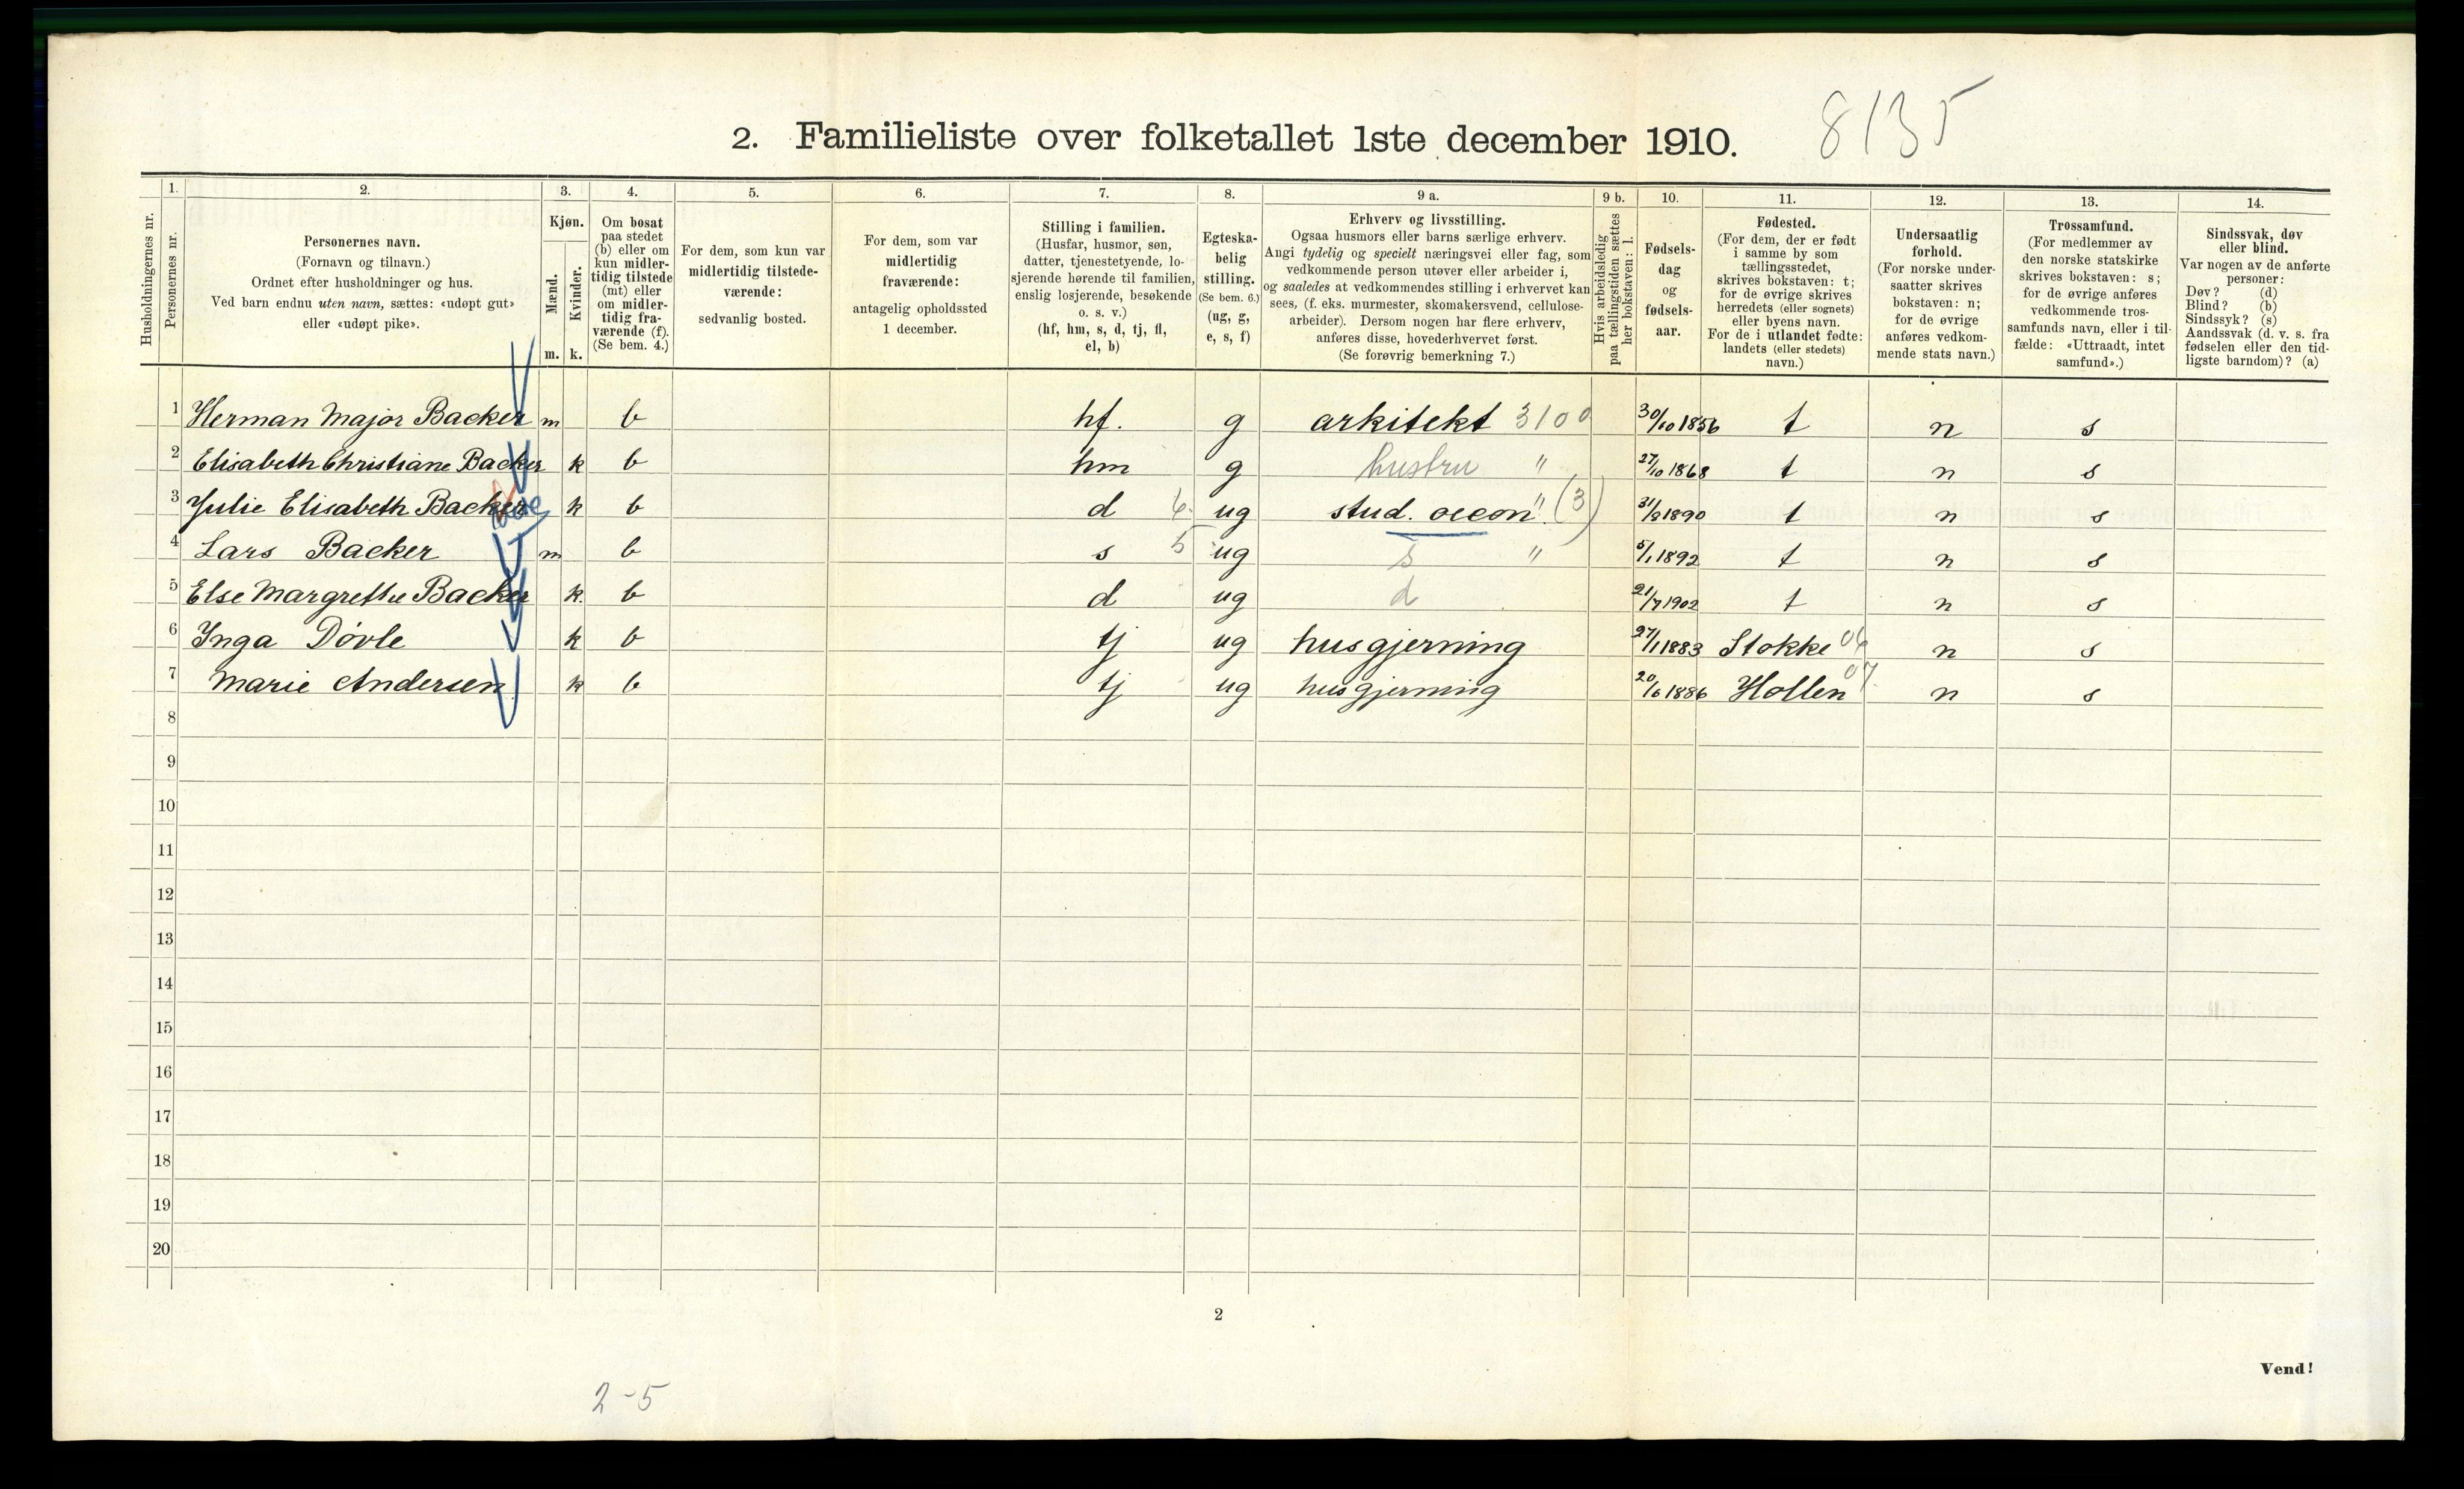 8135
2. Familieliste over folketallet 1ste december 1910.
Husholdningernes nr.
1.
Personernes nr.
2.
Personernes navn.
(Fornavn og tilnavn.)
Ordnet efter husholdninger og hus.
Ved barn endnu uten navn, sættes: «udøpt gut»
eller «udøpt pike».
3.
Kjøn.
Mænd.
Kvinder.
m. k.
4.
Om bosat
paa stedet
(b) eller om
kun midler-
tidig tilstede
(mt) eller
om midler-
tidig fra-
værende (f).
(Se bem. 4.)
5.
For dem, som kun var
midlertidig tilstede-
værende:
sedvanlig bosted.
6.
For dem, som var
midlertidig
fraværende:
antagelig opholdssted
1 december.
7.
Stilling i familien.
(Husfar, husmor, søn,
datter, tjenestetyende, lo-
sjerende hørende til familien,
enslig losjerende, besøkende
o. s. v.)
(hf, hm, s, d, tj, fl,
el, b)
8.
Egteska-
belig
stilling.
(Se bem. 6.)
(ug, g,
e, s, f)
9 a.
Erhverv og livsstilling.
Ogsaa husmors eller barns særlige erhverv.
Angi tydelig og specielt næringsvei eller fag, som
vedkommende person utøver eller arbeider i,
og saaledes at vedkommendes stilling i erhvervet kan
sees, (f. eks. murmester, skomakersvend, cellulose-
arbeider). Dersom nogen har flere erhverv,
anføres disse, hovederhvervet først.
(Se forøvrig bemerkning 7.)
9 b.
Hvis arbeidsledig
paa tællingstiden sættes
her bokstaven: l.
10.
Fødsels-
dag
og
fødsels-
aar.
11.
Fødested.
(For dem, der er født
i samme by som
tællingsstedet,
skrives bokstaven: t;
for de øvrige skrives
herredets (eller sognets)
eller byens navn.
For de i utlandet fødte:
landets (eller stedets)
navn.)
12.
Undersaatlig
forhold.
(For norske under-
saatter skrives
bokstaven: n;
for de øvrige
anføres vedkom-
mende stats navn.)
13.
Trossamfund.
(For medlemmer av
den norske statskirke
skrives bokstaven: s;
for de øvrige anføres
vedkommende tros-
samfunds navn, eller i til-
fælde: «Uttraadt, intet
samfund».)
14.
Sindssvak, døv
eller blind.
Var nogen av de anførte
personer:
Døv? (d)
Blind? (b)
Sindssyk? (s)
Aandssvak (d. v. s. fra
fødselen eller den tid-
ligste barndom)? (a)
1 Herman Major Backer m b hf. g arkitekt 3100 30/10 1856 t n s
2 Elisabeth Christiane Backer k b hm g hustru " 27/10 1868 t n s
3 Julie Elisabeth Backer k b d 6 ug stud. oecon. " (3) 31/8 1890 t n s
4 Lars Backer m b s 5 ug s " 5/1 1892 t n s
5 Else Margrethe Backer k. b d ug d 21/7 1902 t n s
6 Inga Dövle k b tj ug husgjerning 27/1 1883 Stokke 06 n s
7 Marie Andersen k b tj ug husgjerning 20/6 1886 Hollen 07. n s
8
9
10
11
12
13
14
15
16
17
18
19
20
2
Vend!
2-5